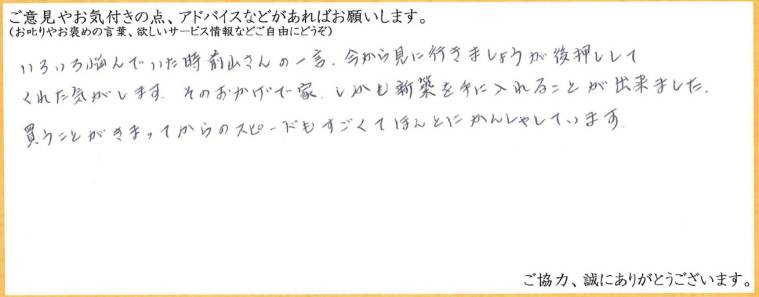 ご意見やお気付きの点、アドバイスなどがあればお願いします。
(お叱りやお褒めの言葉、欲しいサービス情報などご自由にどうぞ)
いろいろ悩んでいた時前山さんの一言、今から見に行きましょうが後押しして
くれた気がします。そのおかげで家、しかも新築を手に入れることが出来ました。
買うことがきまってからのスピードもすごくてほんとにかんしゃしています。
ご協力、誠にありがとうございます。